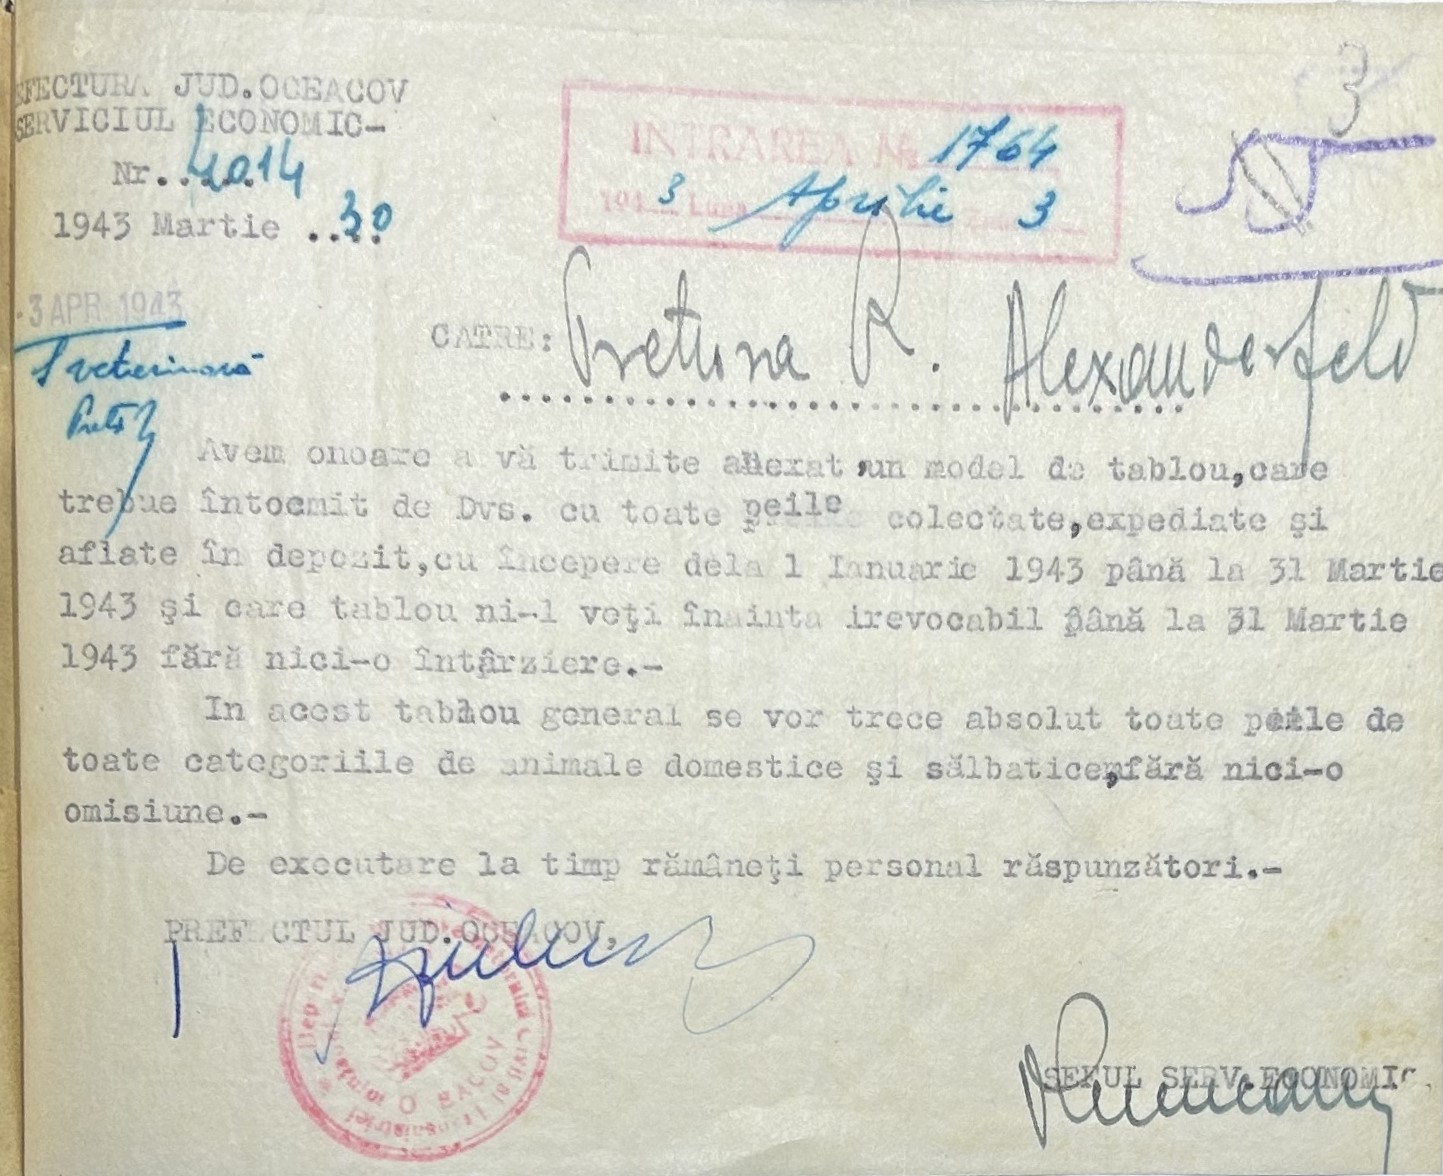 EFECTURA JUD.OCEACOV
SERVICIUL ECONOMIC-
Nr......4014
1943 Martie ....30
INTRAREA № 1764
1943 Luna Aprilie 3
3
-3 APR 1943
S veterinară
CATRE: Pretura R. Alexanderfeld
Avem onoare a vă trimite anexat un model de tablou,care
trebue întocmit de Dvs. cu toate peile colectate,expediate şi
aflate în depozit,cu începere dela 1 Ianuarie 1943 până la 31 Martie
1943 şi care tablou ni-l veţi înainta irevocabil până la 31 Martie
1943 fără nici-o întârziere.-
In acest tablou general se vor trece absolut toate peile de
toate categoriile de animale domestice şi sălbatice,fără nici-o
omisiune.-
De executare la timp rămâneţi personal răspunzători.-
PREFECTUL JUD.OCEACOV,
OCEACOV
SEFUL SERV.ECONOMIC